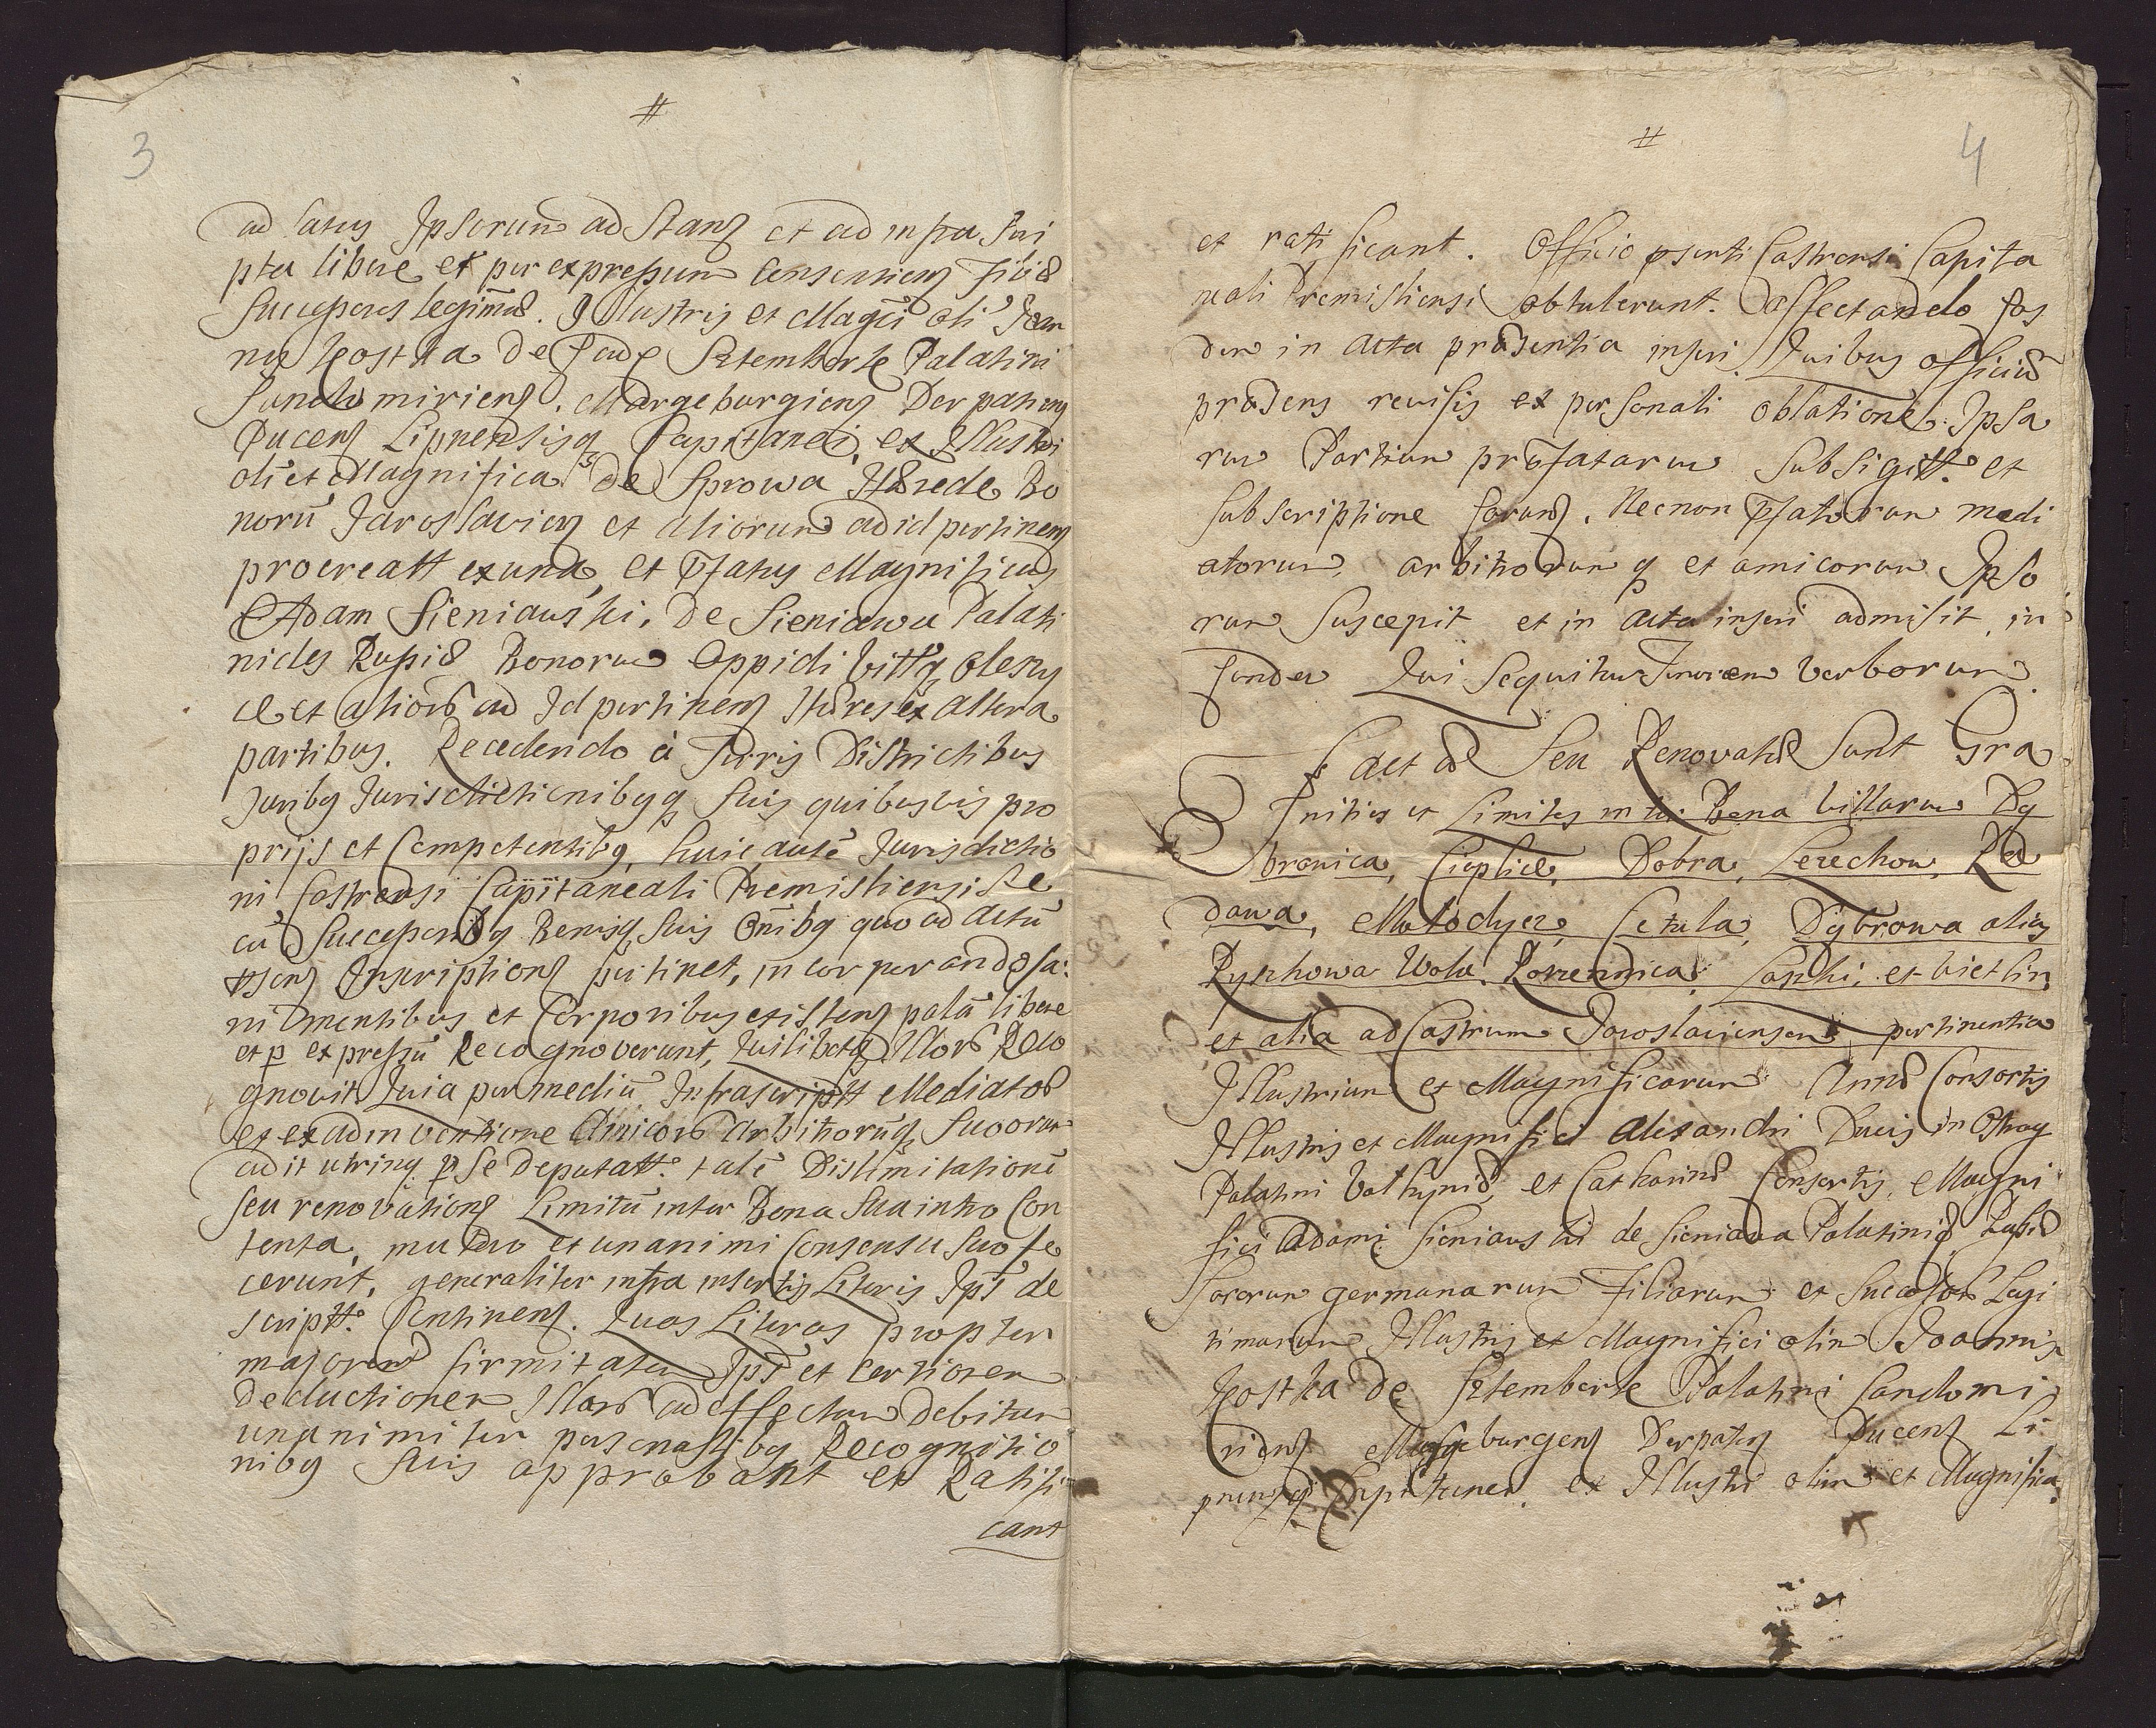 #
3
ad latus Ipsorum ad Stans et ad infra scri
pta libere et per expressum consentiens filiæ
Succesores legimæ. Illustris et Magci oli Joan
nis Kostka De Sztemberk Palatini
Sendomiriens. Margeburgiens Derpatiens
Pucens Lipnensisq Capitanei, ex Illustri
oli et Magnifica de Sprowa Hærede Bo
noru Jaroslaviens et aliorum ad id pertinens
procreatt ex una, et Pfatus Magnificus
Adam Sieniawski, de Sieniawa Palati
nides Russiæ Bonorum Oppidi Villæq Oleszy
ce et alioru ad Id pertinens Hæres ex altera
partibus. Recedendo à Terris Districtibus
Juribq Jurisdictionibqq Suis quibusvis pro
prijs et Competentibq, huic autē Jurisdictio
ni Castrensi Capitaneali Premisliensi Se
cū Succesoribq Bonisq Suis Onibq quo ad Actū
pñs Inscriptions pertinet, incorporando sa:
ni mentibus et Corporibus existens palā libere
et p expressū Recognoverunt, quilibetq Illorū Reco
gnovit Quia per mediū Infrascriptt Mediatorū
et ex adinventione Amicorū Arbitrorūq Suorum
ad it utrinq p Se Deputatt. talē Dislimitationē
seu renovations Limitū inter Bona Sua intro Con
tenta, mutuo et unanimi Consensu Suo fe
cerunt, generaliter infra insertis Literis Ips de
scriptt. Continens. Quas Literas propter
majorem firmitatem Ips et certiorem
Deductionem Illorū ad effectum Debitum
unanimiter personalibq Recognitio
nibq Suis approbant et Ratifi
cant
#
4
et ratificant. Officio psenti Castrensi Capita
neali Premisliensi obtulerunt. Affectando eas
dem in Acta præsentia inseri. Quibus officiū
præsens revisis ex personali oblatione Ipsa
rum Partium præfatarum Subsigitt. et
subscriptione earum, Necnon Pfatorum medi
atorum, arbitrorum q et amicorum Ipso
rum Suscepit et in Acta inseri admisit, in
eunde Qui Sequitur Tenorem Verborum.
Factæ Seu Renovatæ Sunt Gra
nities et Limites inter Bona Villarum Dq
browica, Cieplice, Dobra, Lezechow, Ra
dawa, Mołodycz, Cetula, Dąbrowa alias
Ryszkowa Wola, Korzenica, Laszki, et Wietlin
et alia ad Castrum Jaroslaviensem pertinentia
Illustrium et Magnificarum Annæ Consortis
Illustris et Magnifici Alexandri Ducis in Ostrog
Palatini Volhyniæ, et Catharinæ Consortis, Magni
fici Adami Sieniawski de Sieniawa Palatinidæ Russiæ
Sororum germanarum Filiarum et Succesorū Legi
timarum Illustris et Magnifici olim Joannis
Kostka De Sztemberk Palatini Sandomi
riens Margeburgens Derpatens Pucens Li
pnens q Capitanei, ex Illustri olim et Magnifica